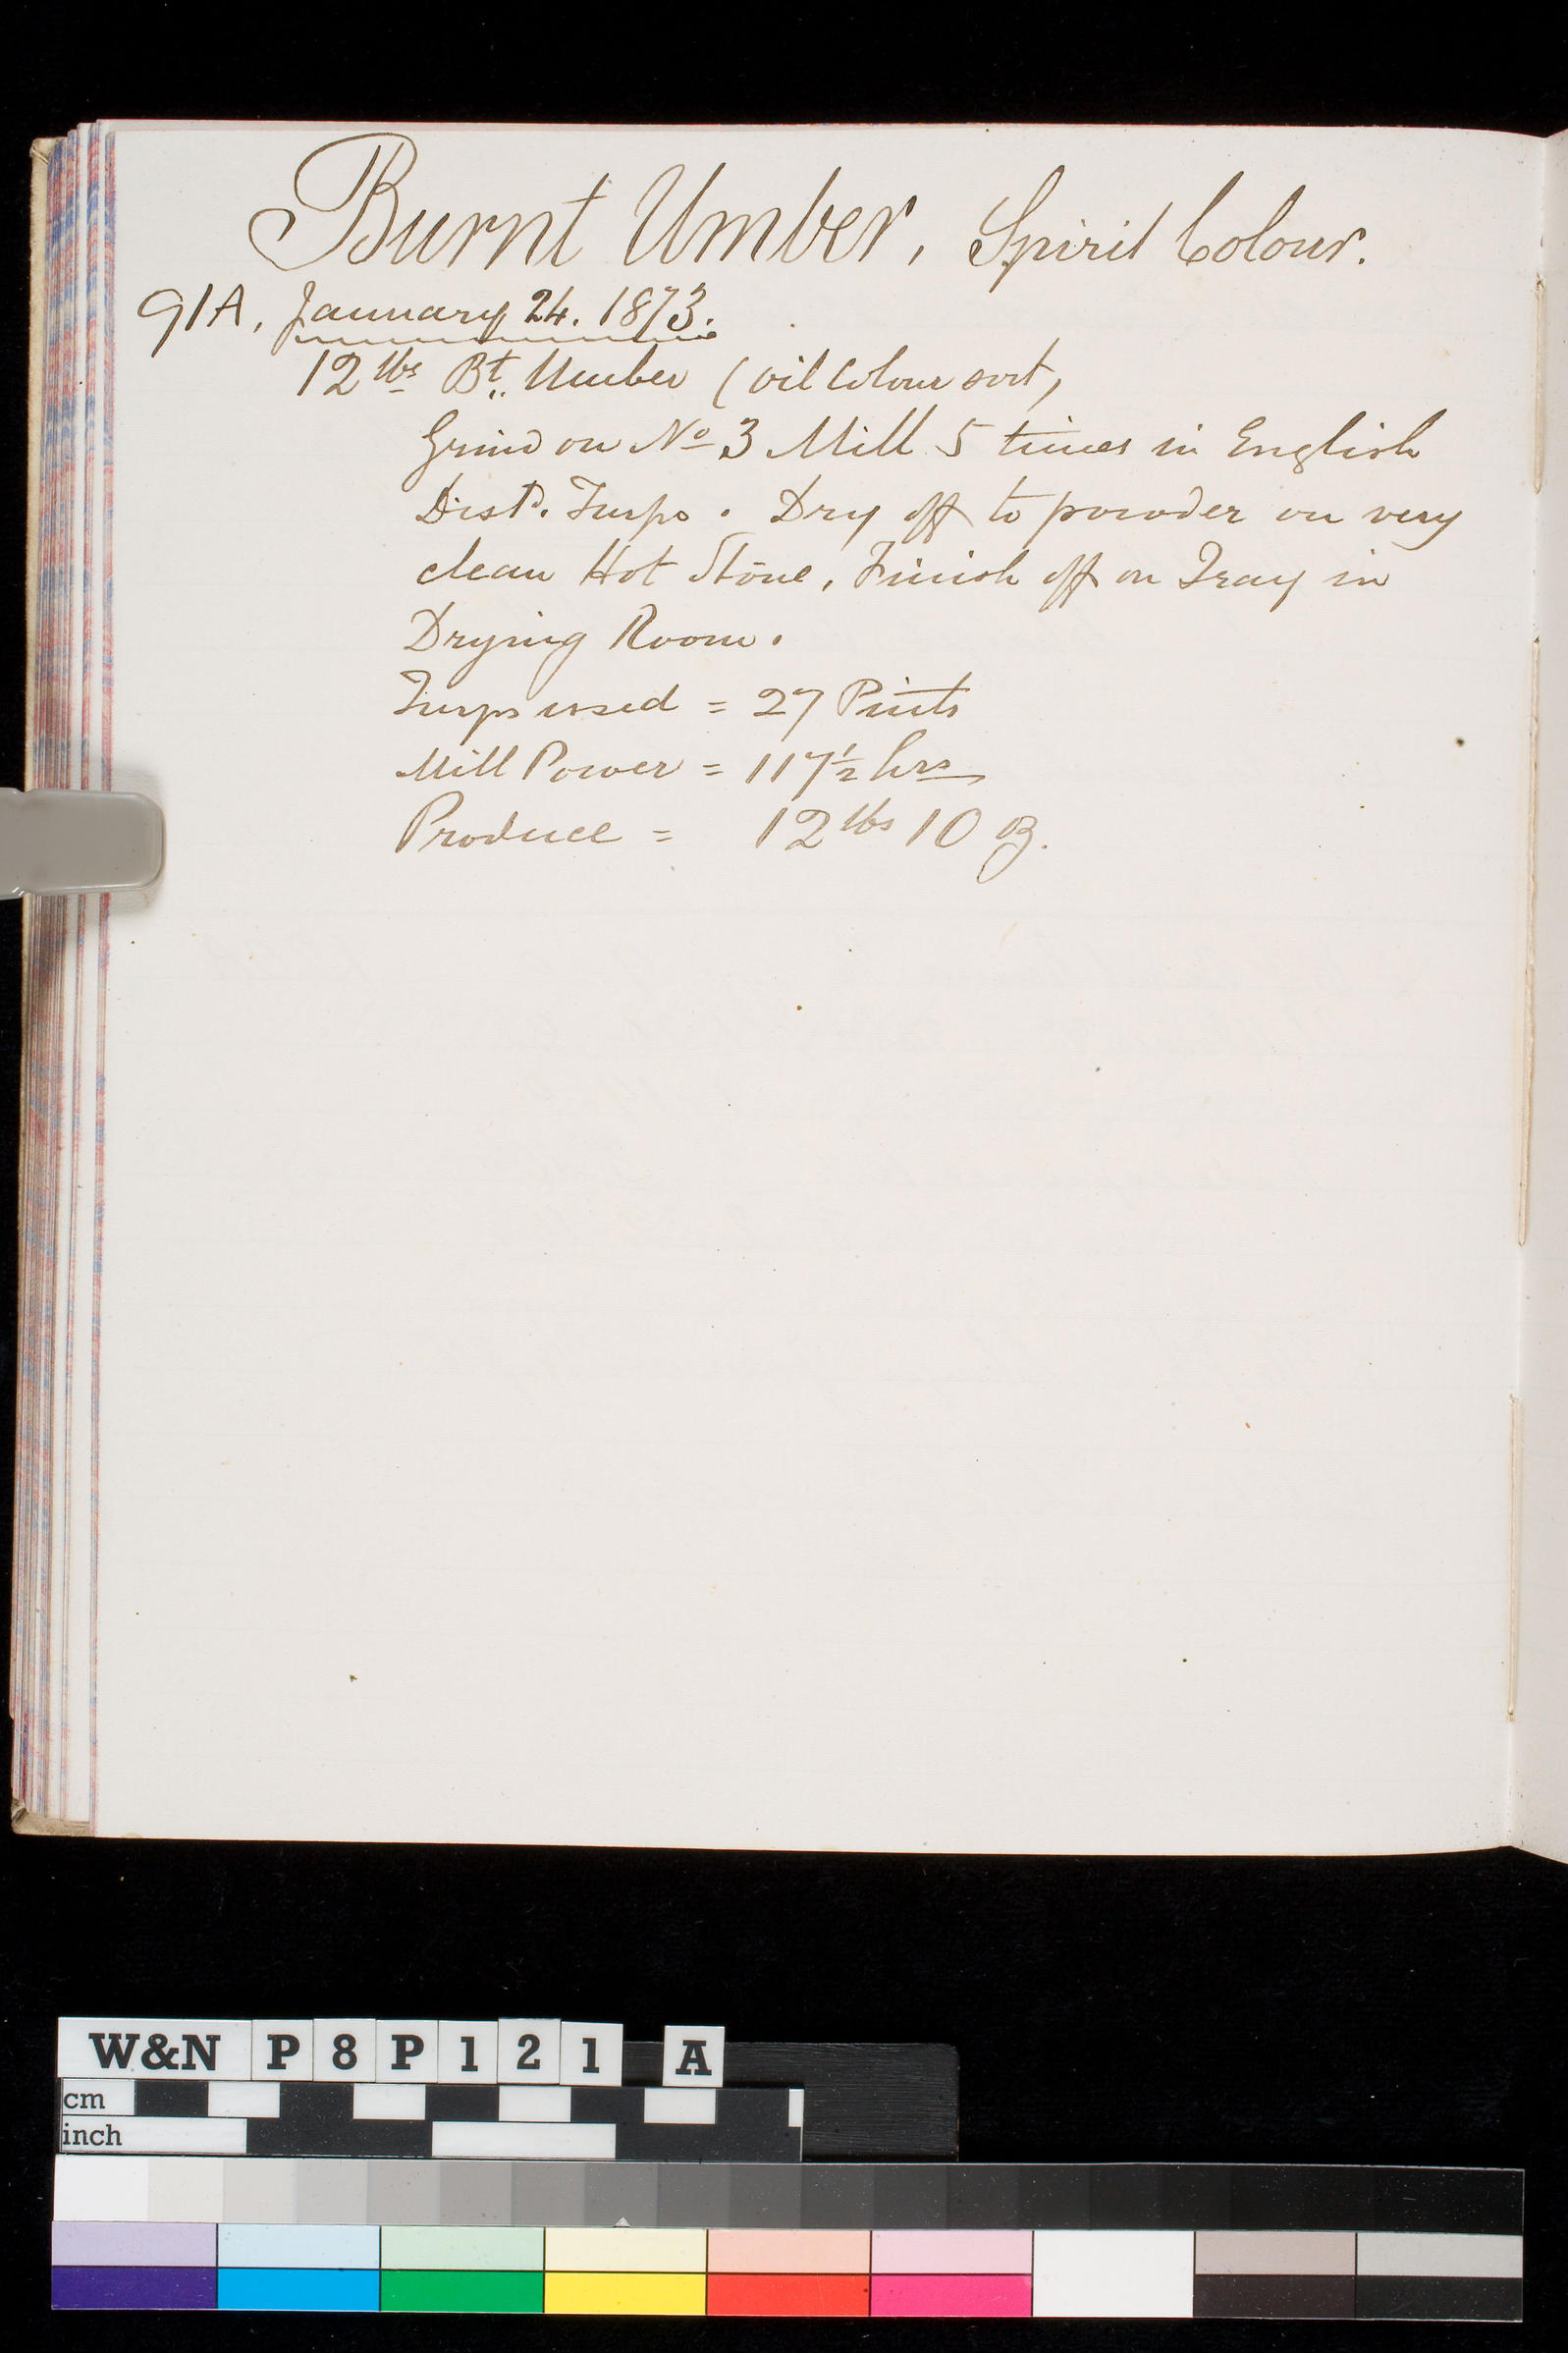 Burnt Umber, Spirit Colour.
91A, January 24. 1873.
12 lbs Bt. Umber (oil Colour sort,
Grind on No 3 Mill 5 times in English
Distd. Turps. Dry off to powder on very
clean Hot Stone, Finish off on Tray in
Drying Room.
Turps used = 27 Pints
Mill Power = 117½ hrs
Produce = 12 lbs 10 oz.
W&N P8P121 A
cm
inch